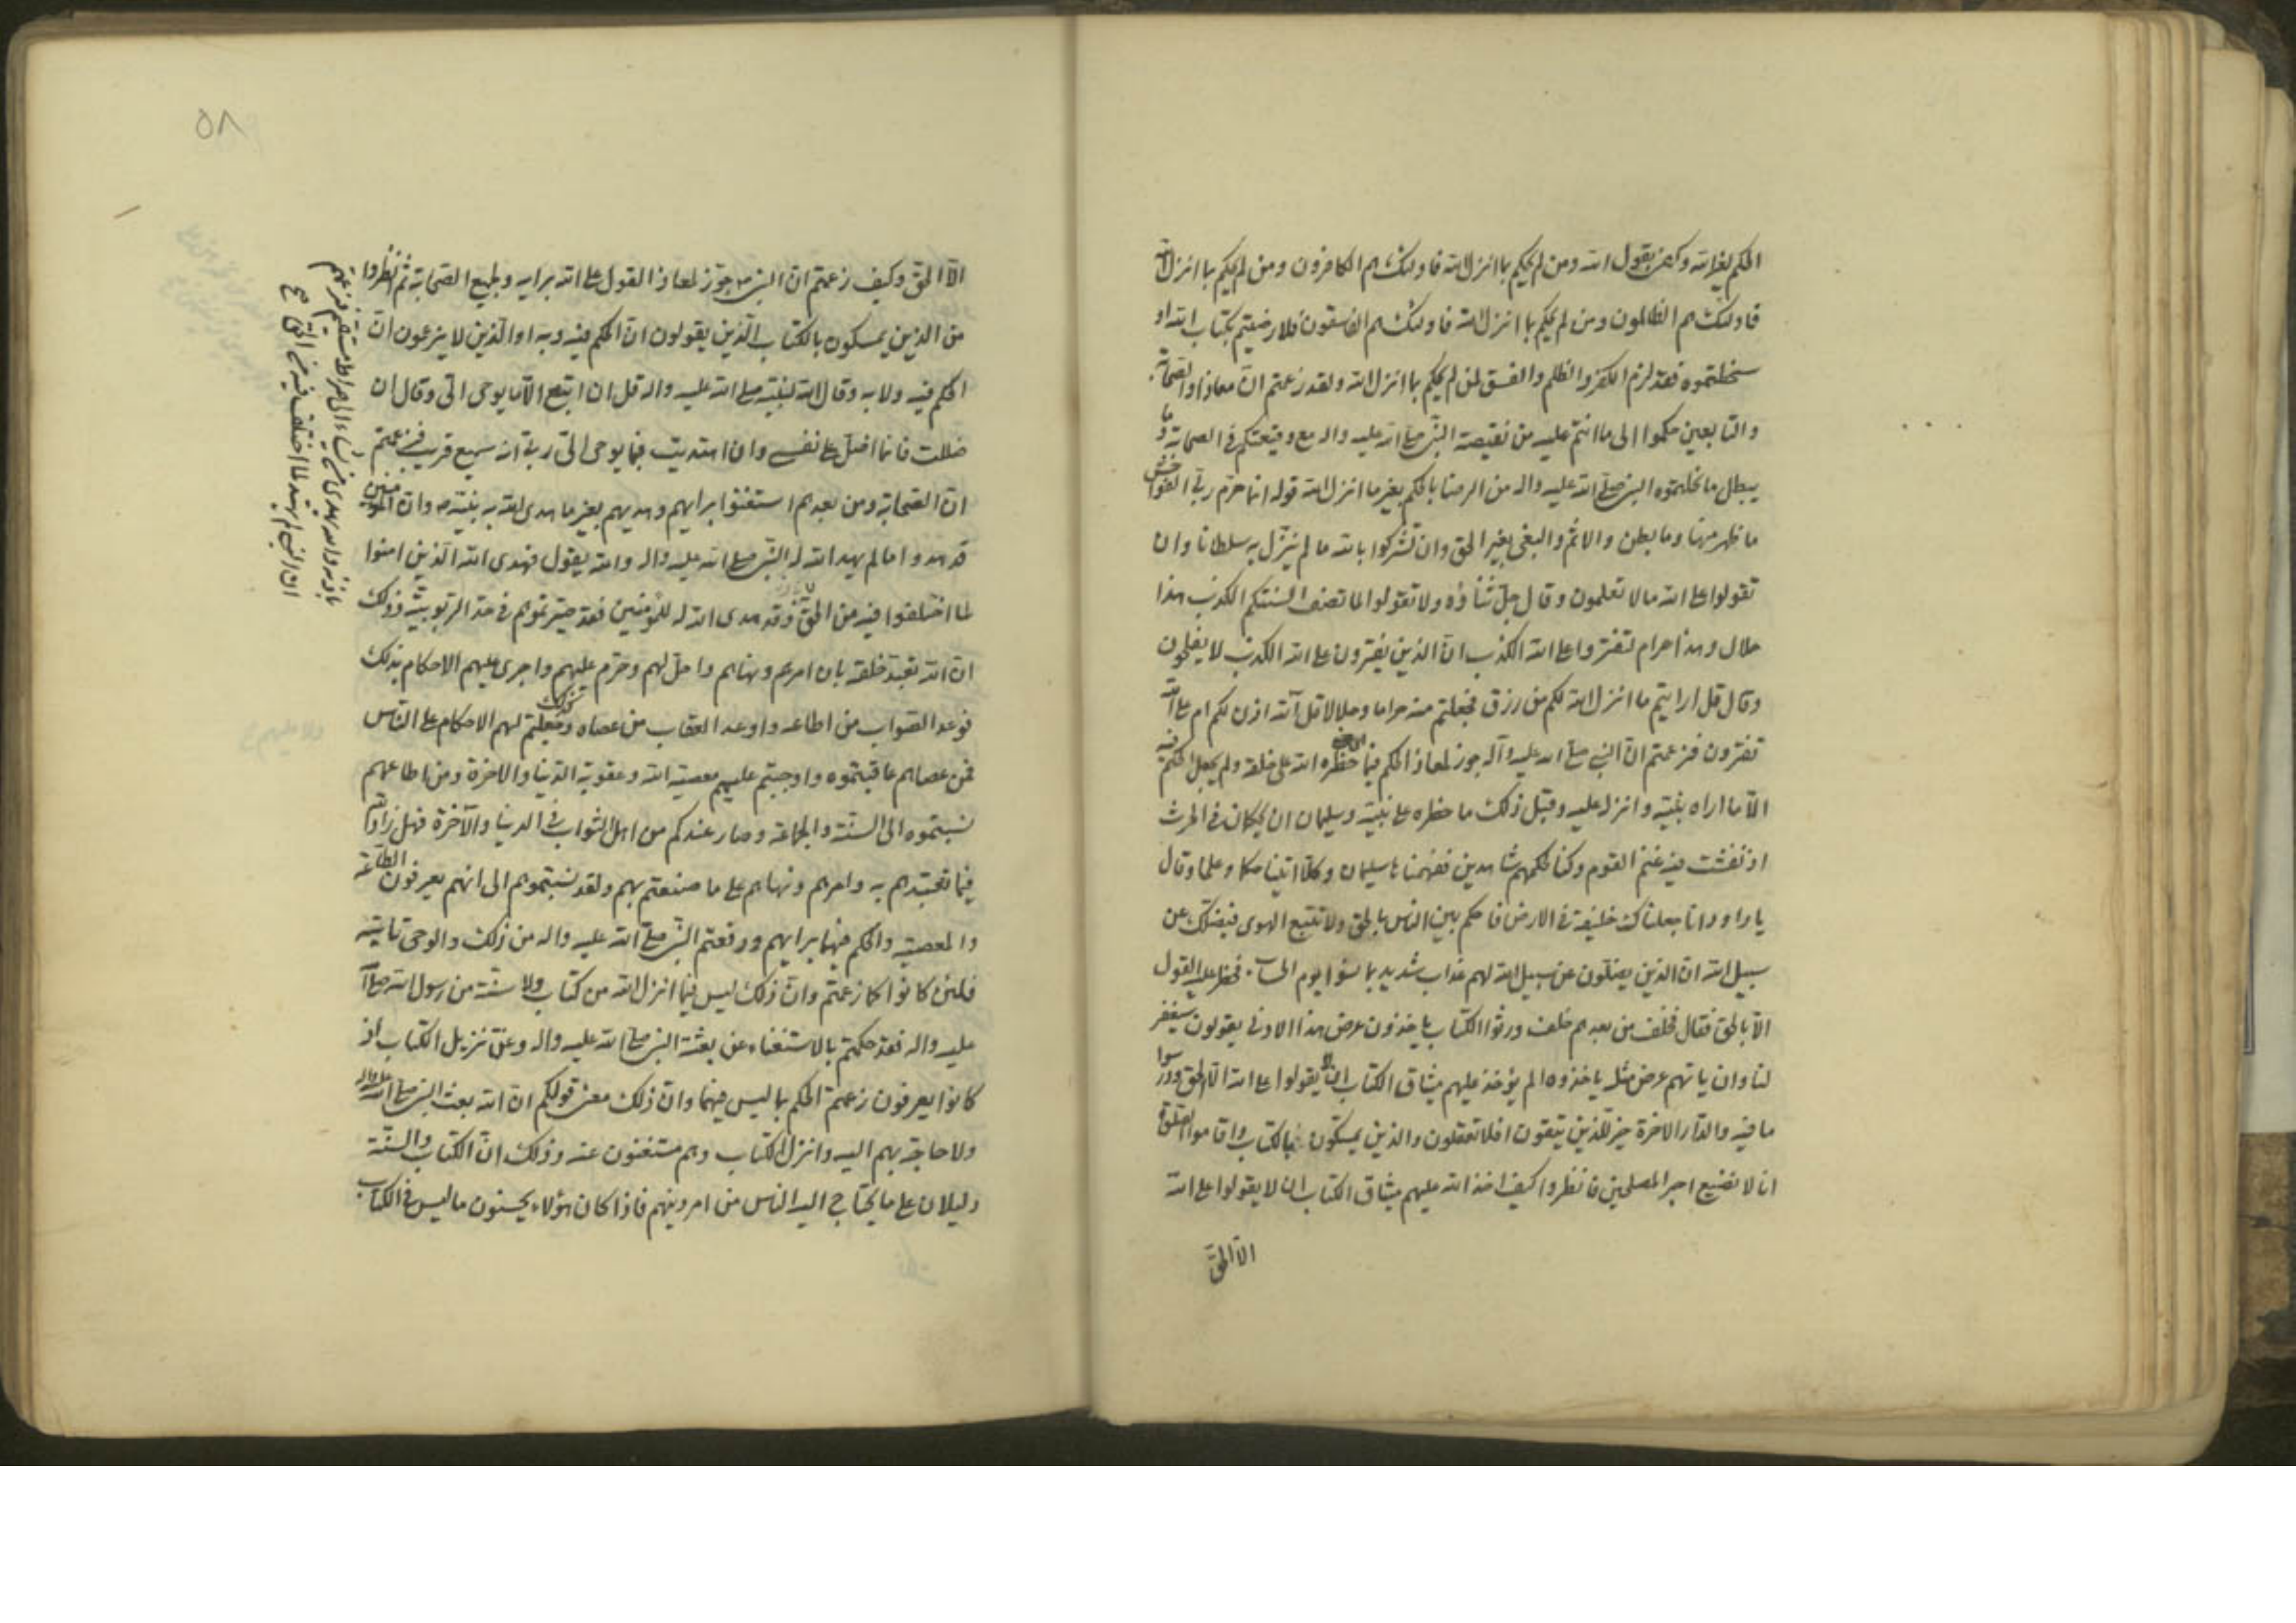 الحكم لغيرالله وكمن يقول الله ومن لم يحكم بما انزل الله فاولئك هم الكافرون ومن لم يحكم بما انزل الله
فاولئك هم الظالمون ومن لم يحكم بما انزل الله فاولئك هم الفاسقون فلا رضيتم بكتاب الله او
سخطتموه فقد لزم الكفر والظلم والفسق لمن لم يحكم بما انزل الله ولقد زعمتم انّ معاذا والصحابة
والتابعين حكموا الى ما انتم عليه من نقيصة النبي صلى الله عليه واله مع وقيعتكم في الصحابة وما
يبطل ما نحلتموه النبي صلى الله عليه واله من الرضا بالحكم بغير ما انزل الله قوله انما حرّم ربّي الفواحش
ما ظهر منها وما بطن والاثم والبغي بغير الحق وان تشركوا بالله ما لم ينزّل به سلطانا وان
تقولوا على الله ما لا تعلمون وقال جلّ ثناؤه ولا تقولوا لما تصف السنتكم الكذب هذا
حلال وهذا حرام لتفتروا على الله الكذب انّ الذين يفترون على الله الكذب لا يفلحون
وقال قل ارايتم ما انزل الله لكم من رزق فجعلتم منه حراما وحلالا قل آلله اذن لكم ام على الله
تفترون فزعمتم انّ النبي صلى الله عليه وآله جوز لمعاذ الحكم فيما حظره الله على خلقه ولم يجعل الحكم فيه
الّا ما اراه نبيّه وانزل عليه وقبل ذلك ما حظره على نبيّه وسليمان ان يحكمان في الحرث
اذ نفشت فيه غنم القوم وكنا لحكمهم شاهدين ففهمناها سليمان وكلّا اتينا حكما وعلما وقال
يا داود انا جعلناك خليفة في الارض فاحكم بين الناس بالحق ولا تتبع الهوى فيضلك عن
سبيل الله ان الذين يضلون عن سبيل الله لهم عذاب شديد بما نسوا يوم الحساب فحظر عليه القول
الّا بالحق فقال فخلف من بعدهم خلف ورثوا الكتاب ياخذون عرض هذا الادنى يقولون سيغفر
لنا وان ياتهم عرض مثله ياخذوه الم يؤخذ عليهم ميثاق الكتاب ان لا يقولوا على الله الّا الحق ودرسوا
ما فيه والدّار الاخرة خير للّذين يتقون افلا تعقلون والذين يمسّكون بالكتاب واقاموا الصلوة
انا لا نضيع اجر المصلحين فانظروا كيف اخذ الله عليهم ميثاق الكتاب ان لا يقولوا على الله
الّا الحقّ
٥٨
الّا الحقّ وكيف زعمتم انّ النبي ص جوّز لمعاذ القول على الله برايه وبجميع الصّحابة ثم انظروا
من الذين يمسكون بالكتاب الّذين يقولون انّ الحكم فيه وبه او الّذين لا يزعمون انّ
الحكم فيه ولا به وقال الله لنبيّه صلى الله عليه واله قل ان اتبع الّا ما يوحى الىّ وقال ان
ضللت فانما اضلّ على نفسي وان اهتديت فبما يوحى الىّ ربّي انه سميع قريب فزعمتم
انّ الصّحابة ومن بعدهم استغنوا برايهم وهديهم بغير ما هدى الله به نبيّه ص وانّ المؤمنين
قد هدوا ما لم يهد الله له النبي صلى الله عليه واله والله يقول فهدى الله الّذين امنوا
لما اختلفوا فيه من الحقّ وقد هدى الله له للمؤمنين فقد صيّرتموهم في حدّ الربوبيّة وذلك
انّ الله تعبّد خلقه بان امرهم ونهاهم واحلّ لهم وحرّم عليهم واجرى عليهم الاحكام بذلك
فوعد الصّواب من اطاعه واوعد العقاب من عصاه وجعلتم كذلك لهم الاحكام على النّاس
فمن عصاهم عاقبتموه واوجبتم عليهم معصية الله وعقوبة الدّنيا والاخرة ومن اطاعهم
نسبتموه الى السنّة والجماعة وصار عندكم من اهل الثواب في الدنيا والآخرة فهل زاد الله
فيما تعبّدهم به وامرهم ونهاهم على ما صنعتم بهم ولقد نسبتموهم الى انهم يعرفون الطاعة
والمعصية والحكم فيهما برايهم ودفعتم النّبي صلى الله عليه واله من ذلك والوحى تاتيه
فلئن كانوا كما زعمتم وانّ ذلك ليس فيما انزل الله من كتاب ولا سنّة من رسول الله صلى الله
عليه واله فقد حكمتم بالاستغناء عن بعثة النبي صلى الله عليه واله وعن تنزيل الكتاب اذ
كانوا يعرفون زعمتم الحكم بما ليس فيهما وانّ ذلك معنى قولكم انّ الله بعث النبي صلى الله عليه واله
ولا حاجة بهم اليه وانزل الكتاب وهم مستغنون عنه وذلك انّ الكتاب والسنّة
دليلان على ما يحتاج اليه الناس من امر دينهم فاذا كان هؤلاء يحسنون ما ليس في الكتاب
باذنه والله يهدى من يشاء الى صراط مستقيم فزعمتم
ان النبي لم يهتد لما اختلف فيه من الحق صح